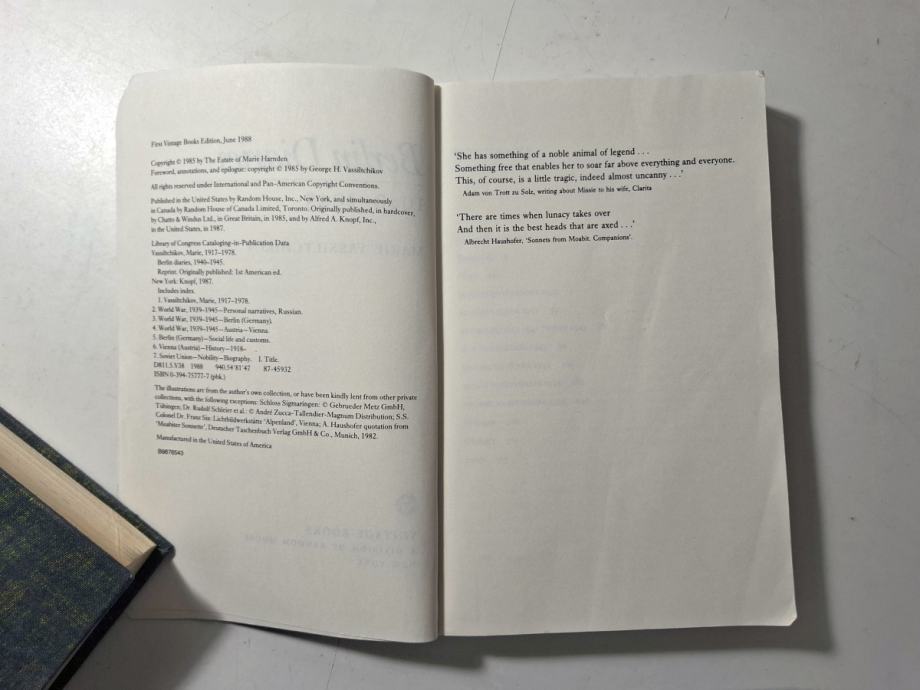 First Vintage Books Edition, June 1988
Copyright © 1985 by The Estate of Marie Harnden
Foreword, annotations, and epilogue: copyright © 1985 by George H. Vassiltchikov
All rights reserved under International and Pan-American Copyright Conventions.
Published in the United States by Random House, Inc., New York, and simultaneously
in Canada by Random House of Canada Limited, Toronto. Originally published, in hardcover,
by Chatto & Windus Ltd., in Great Britain, in 1985, and by Alfred A. Knopf, Inc.,
in the United States, in 1987.
Library of Congress Cataloging-in-Publication Data
Vassiltchikov, Marie, 1917–1978.
Berlin diaries, 1940–1945.
Reprint. Originally published: 1st American ed.
New York: Knopf, 1987.
Includes index.
1. Vassiltchikov, Marie, 1917–1978.
2. World War, 1939–1945—Personal narratives, Russian.
3. World War, 1939–1945—Berlin (Germany).
4. World War, 1939–1945—Austria—Vienna.
5. Berlin (Germany)—Social life and customs.
6. Vienna (Austria)—History—1918–
7. Soviet Union—Nobility—Biography. I. Title.
D811.5.V38 1988 940.54'81'47 87-45932
ISBN 0-394-75777-7 (pbk.)
The illustrations are from the author's own collection, or have been kindly lent from other private
collections, with the following exceptions: Schloss Sigmaringen: © Gebrueder Metz GmbH,
Tübingen; Dr. Rudolf Schleier et al.: © André Zucca-Tallendier-Magnum Distribution; S.S.
Colonel Dr. Franz Six: Lichtbildwerkstätte 'Alpenland', Vienna; A. Haushofer quotation from
'Moabiter Sonnette', Deutscher Taschenbuch Verlag GmbH & Co., Munich, 1982.
Manufactured in the United States of America
B9876543
'She has something of a noble animal of legend . . .
Something free that enables her to soar far above everything and everyone.
This, of course, is a little tragic, indeed almost uncanny . . .'
Adam von Trott zu Solz, writing about Missie to his wife, Clarita
'There are times when lunacy takes over
And then it is the best heads that are axed . . .'
Albrecht Haushofer, 'Sonnets from Moabit. Companions'.